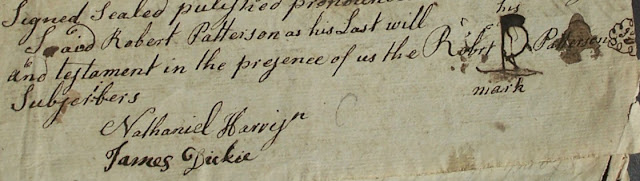 Signed Sealed pulished pronounc
Said Robert Patterson as his Last will his
and testament in the presence of us the Robert P Patterson
Subscribers mark
Nathaniel
James Dickie